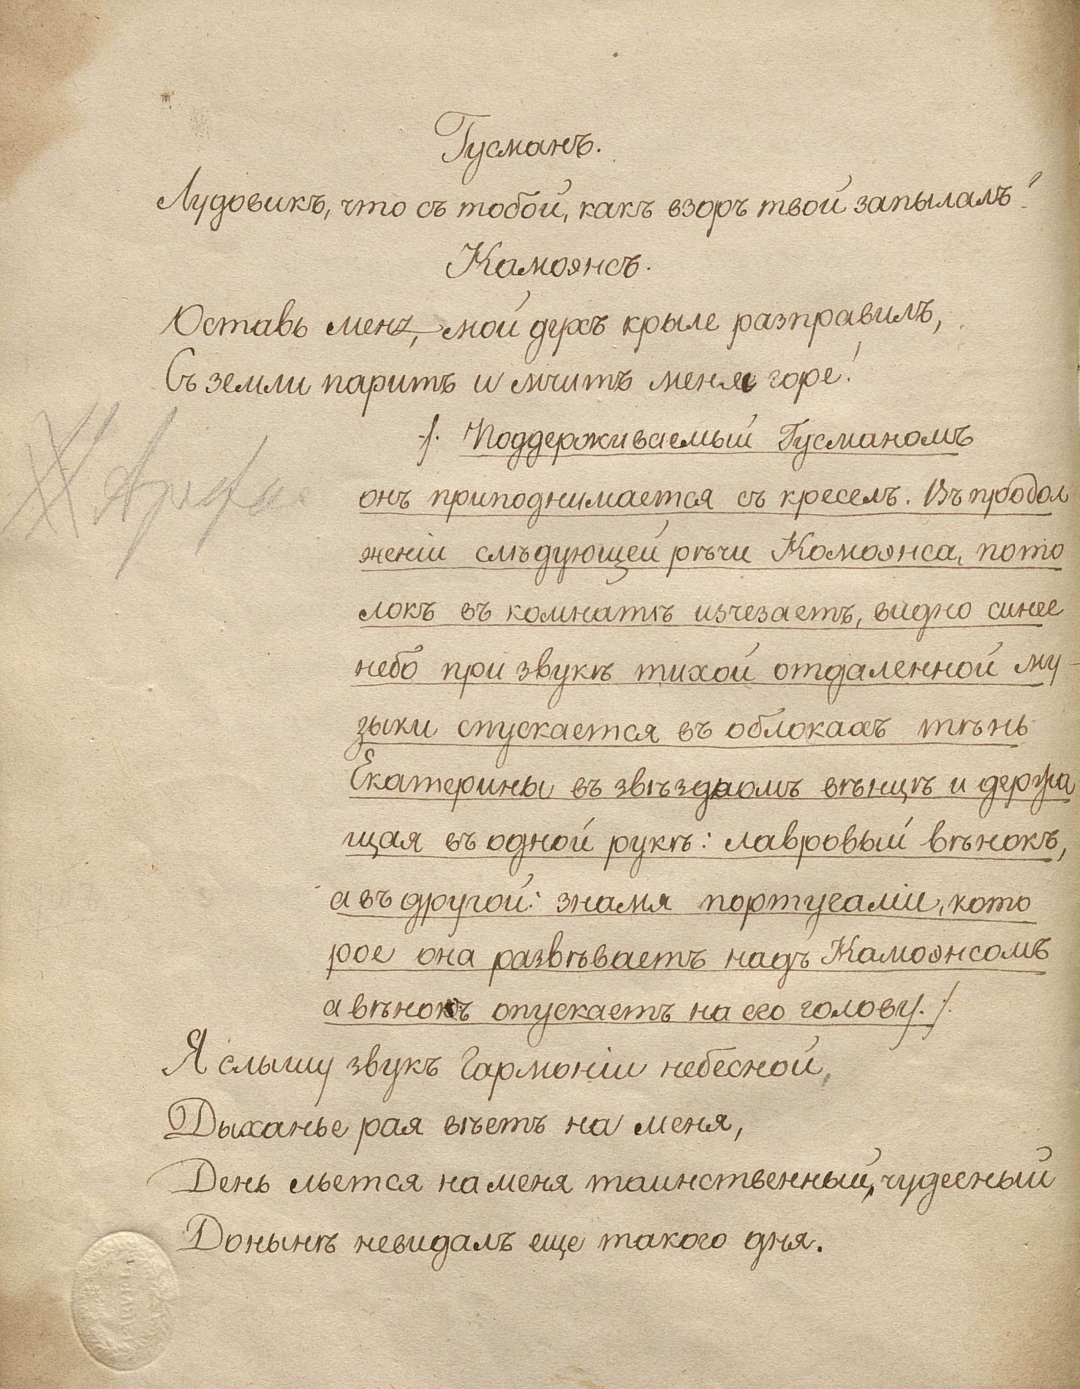 Гусманъ.
Лудовикъ, что съ тобой, какъ взоръ твой запылалъ!
Камоянсъ.
Оставь меня, мой духъ крыле разправилъ,
Съ земли паритъ и мчитъ меня горе!
/. Поддерживаемый Гусманомъ
онъ приподнимается съ креселъ. Въ продол
женіи слѣдующей рѣчи Комоянса, пото
локъ въ комнатѣ изчезаетъ, видно синее
небо при звукѣ тихой отдаленной му-
зыки спускается въ облокахъ тѣнь
Екатерины въ звѣздномъ вѣнцѣ и держа
щая въ одной рукѣ: лавровый вѣнокъ,
а въ другой: знамя португаліи, кото
рое она развѣваетъ надъ Камоянсомъ
а вѣнокъ опускаетъ на его голову. /.
Я слышу звукъ Гармоніи небесной,
Дыханье рая вѣетъ на меня,
День льется на меня таинственный, чудесный
Донынѣ невидалъ еще такого дня.